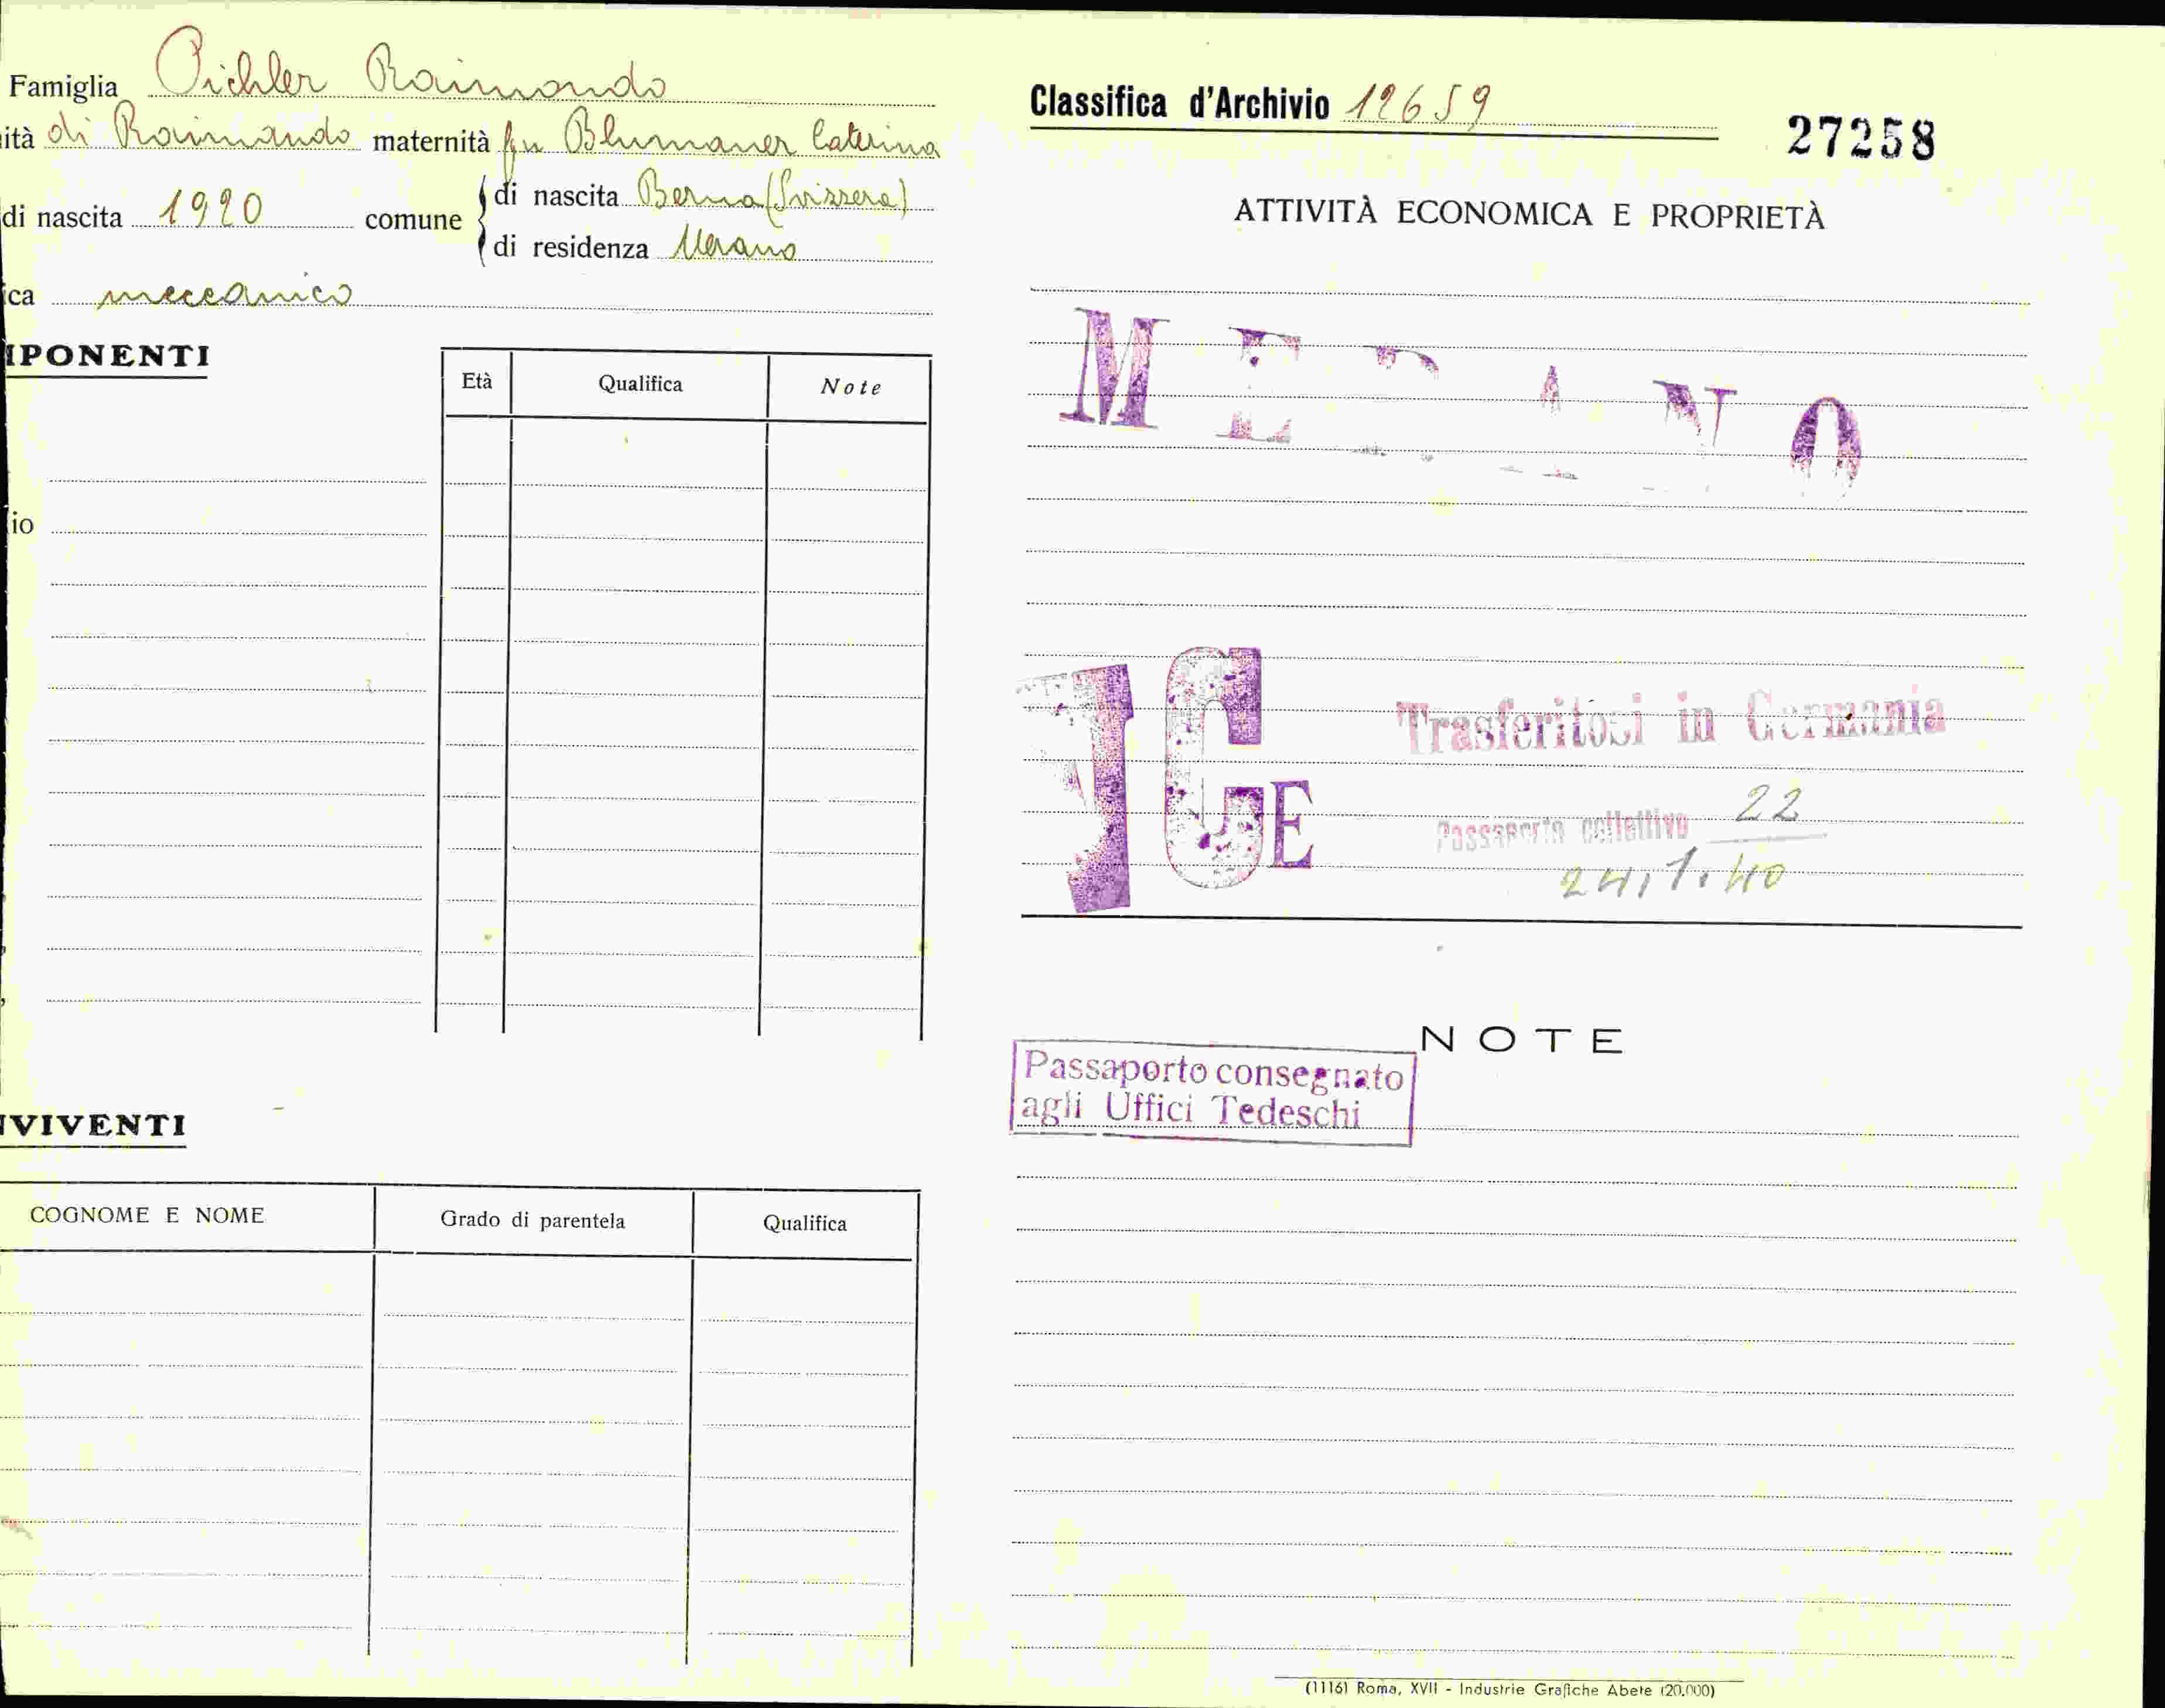 Famiglia Pichler Raimondo
ità di Raimondo maternità fu Blumaner Caterina
di nascita 1920 comune di nascita Berna (Svizzera)
di residenza Merano
ica meccanico
IPONENTI
Età Qualifica Note
io
VIVENTI
COGNOME E NOME Grado di parentela Qualifica
Classifica d'Archivio 12659
27258
ATTIVITÀ ECONOMICA E PROPRIETÀ
MERANO
GE
Trasferitosi in Germania
Passaporto collettivo 22
24.1.40
NOTE
Passaporto consegnato
agli Uffici Tedeschi
(1116) Roma, XVII - Industrie Grafiche Abete (20.000)